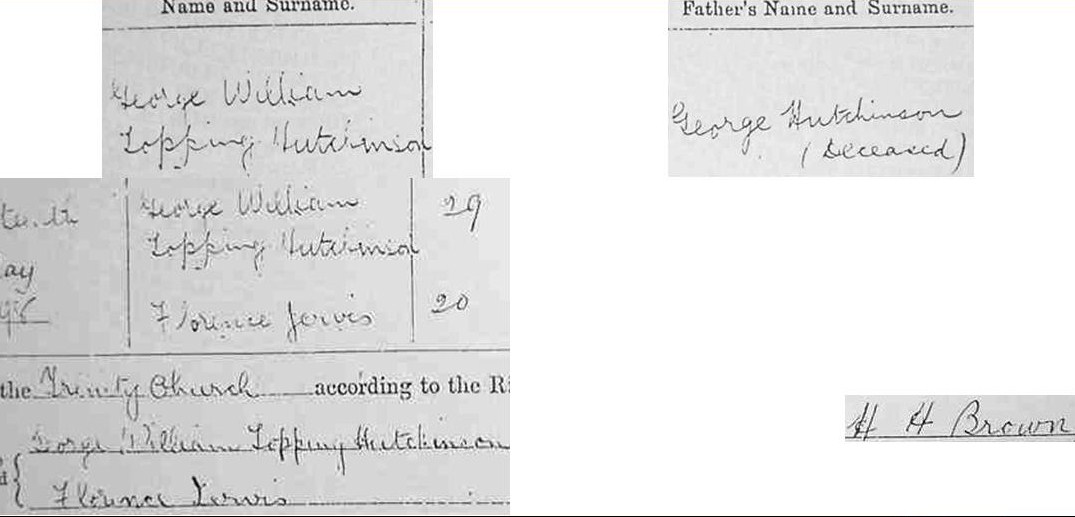 Name and Surname.
George William
Topping Hutchinson
Father's Name and Surname.
George Hutchinson
(Deceased)
George William 29
Topping Hutchinson
ay
Florence Jervis 20
the Trinity Church according to the Ri
George William Topping Hutchinson
Florence Jervis
H H Brown